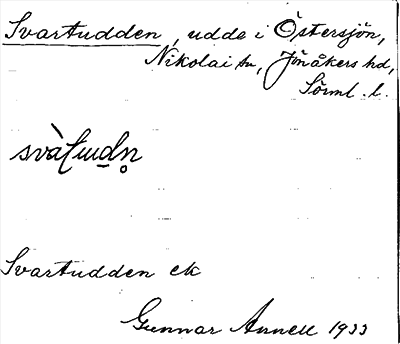 Svartudden, udde i Östersjön,
Nikolai sn, Jönåkers hd,
Sörml. l.
Svartudden ek
Gunnar Annell 1933